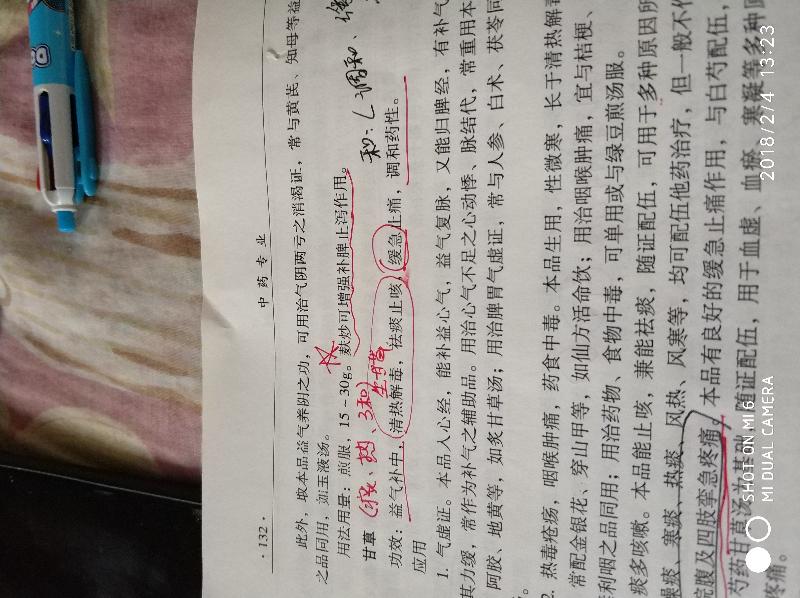 · 132 ·
中 药 专 业
此外，取本品益气养阴之功，可用治气阴两亏之消渴证，常与黄芪、知母等益
之品同用，如玉液汤。
用法用量：煎服，15－30g。麸炒可增强补脾止泻作用。
甘草
和：调和、
功效：益气补中，清热解毒，祛痰止咳，缓急止痛，调和药性。
生甘草
应用
1. 气虚证。本品入心经，能补益心气，益气复脉，又能归脾经，有补气
其力缓，常作为补气之辅助品。用治心气不足之心动悸、脉结代，常重用本
阿胶、地黄等，如炙甘草汤；用治脾胃气虚证，常与人参、白术、茯苓同
2. 热毒疮疡，咽喉肿痛，药食中毒。本品生用，性微寒，长于清热解毒
常配金银花、穿山甲等，如仙方活命饮；用治咽喉肿痛，宜与桔梗、
利咽之品同用；用治药物、食物中毒，可单用或与绿豆煎汤服。
痰多咳嗽。本品能止咳，兼能祛痰，随证配伍，可用于多种原因所
燥痰、寒痰、热痰、风热、风寒等，均可配伍他药治疗，但一般不作
脘腹及四肢挛急疼痛。本品有良好的缓急止痛作用，与白芍配伍，
芍药甘草汤为基础，随证配伍，用于血虚、血瘀、寒凝等多种原
疼痛。
SHOT ON MI 6
MI DUAL CAMERA
2018/2/4 13:23